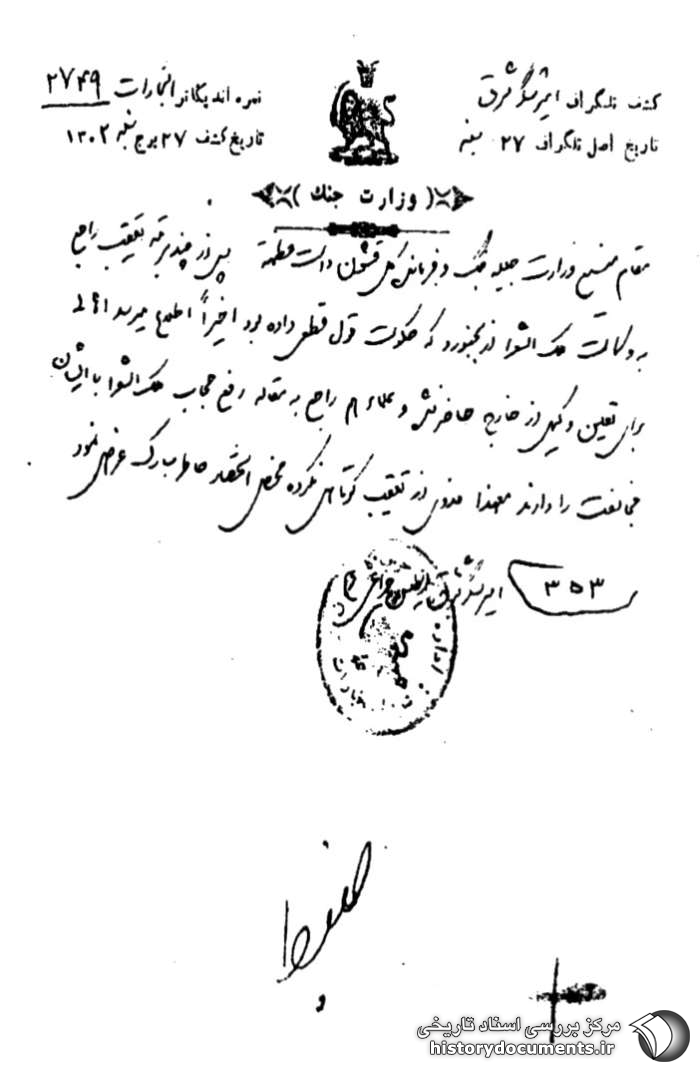 کشف تلگراف امیرلشگر شرق
تاریخ اصل تلگراف ۲۷ سنبله
نمره اندیکاتور التجارات ۲۷۴۹
تاریخ کشف ۲۷ برج سنبله ۱۳۰۲
(وزارت جنك)
مقام منیع وزارت جلیله جنگ و فرمانده کل قشون دامت عظمته پس از چند مرتبه تعقیب راجع
به وکالت ملک الشعرا از بجنورد که حکومت قول قطعی داده بود اخیراً اطلاع میرسد اهالی
برای تعین وکیل از خارج حاضر نشده و علماء هم راجع به مقاله رفع حجاب ملک الشعرا با ایشان
مخالفت را دارند معهذا فدوی از تعقیب کوتاهی نکرده محض استحضار خاطر مبارک عرض نمود
۳۵۳ امیرلشگر شرق
مرکز بررسی اسناد تاریخی
historydocuments.ir